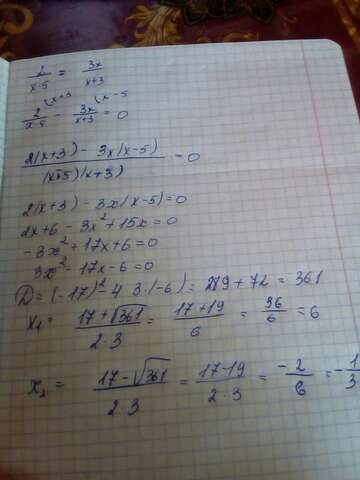 2/(x-5) = 3x/(x+3)
2/(x-5) (x+3 - 3x/(x+3) (x-5 = 0
(2(x+3) - 3x(x-5))/((x-5)(x+3)) = 0
2(x+3) - 3x(x-5)=0
2x+6 - 3x²+15x=0
-3x²+17x+6=0
3x²-17x-6=0
D=(-17)²-4·3·(-6)=289+72=361
x₁ = (17+√361)/(2·3) = (17+19)/6 = 36/6 = 6
x₂ = (17-√361)/(2·3) = (17-19)/(2·3) = -2/6 = -1/3